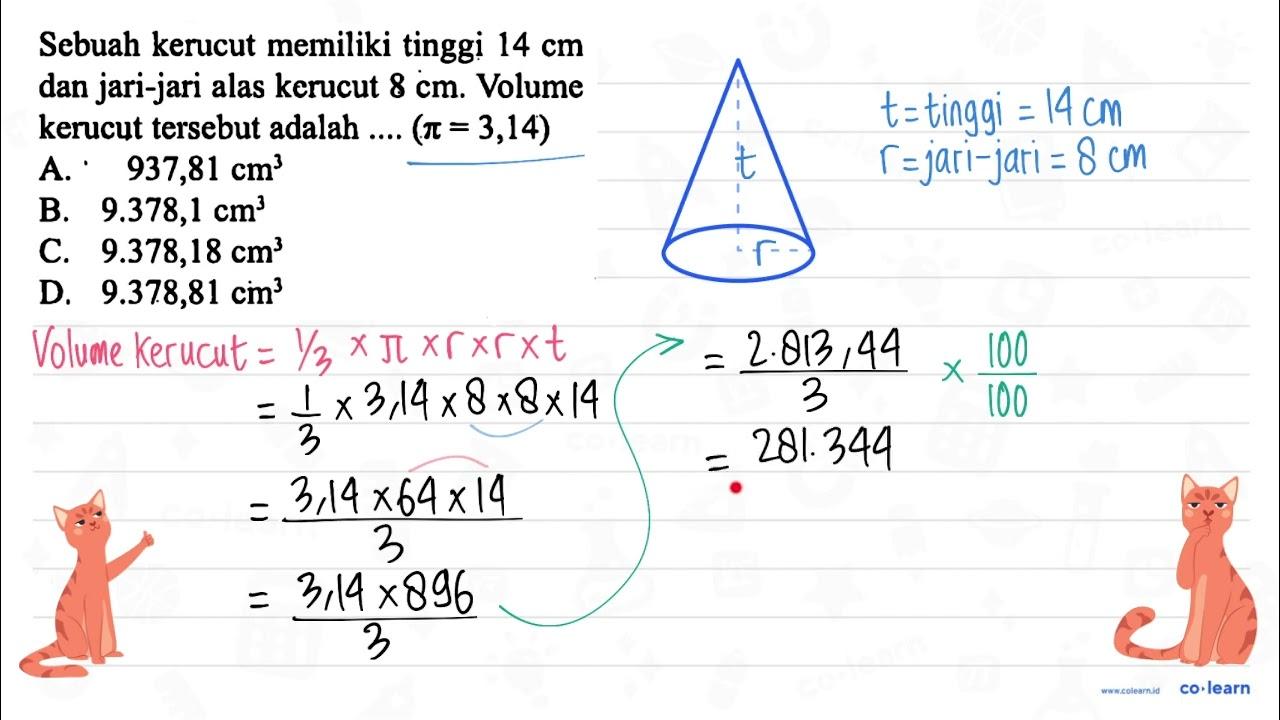 Sebuah kerucut memiliki tinggi 14 cm
dan jari-jari alas kerucut 8 cm. Volume
kerucut tersebut adalah .... (π = 3,14)
A. 937,81 cm³
B. 9.378,1 cm³
C. 9.378,18 cm³
D. 9.378,81 cm³
t
r
t = tinggi = 14 cm
r = jari-jari = 8 cm
Volume kerucut = 1/3 × π × r × r × t
= 1/3 × 3,14 × 8 × 8 × 14
= 3,14 × 64 × 14 / 3
= 3,14 × 896 / 3
= 2.813,44 / 3 × 100 / 100
= 281.344
www.colearn.id co·learn